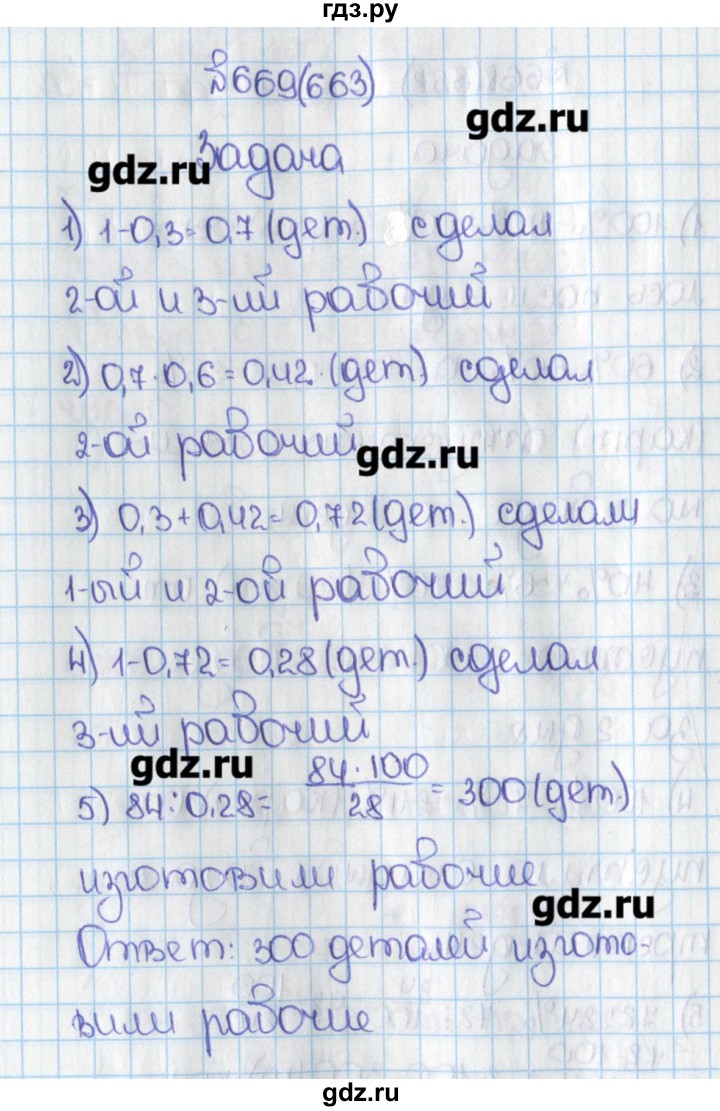 гдз.ру
№669(663)
gdz.ru
Задача
gdz.ru
1) 1-0,3=0,7 (дет.) сделал
2-ой и 3-ий рабочий
2) 0,7·0,6=0,42·(дет.) сделал
2-ой рабочий
gdz.ru
3) 0,3+0,42=0,72(дет.) сделали
1-ый и 2-ой рабочий
4) 1-0,72=0,28(дет.) сделал
3-ий рабочий
gdz.ru
5) 84:0,28= 84·100/28 = 300(дет.)
изготовили рабочие
gdz.ru
Ответ: 300 деталей изгото-
вили рабочие
gdz.ru